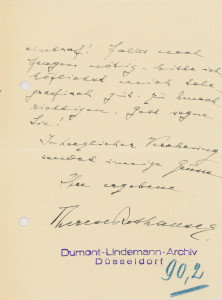 eintraf! Falls noch
Fragen nötig – bitte ich
höflichst mich tele-
grafisch gfl. zu benach-
richtigen. Gott segne
Sie!
In herzlicher Verehrung
sendet innige Grüsse
Ihre ergebene
Therese Rothauser
Dumont-Lindemann-Archiv
Düsseldorf
90,2